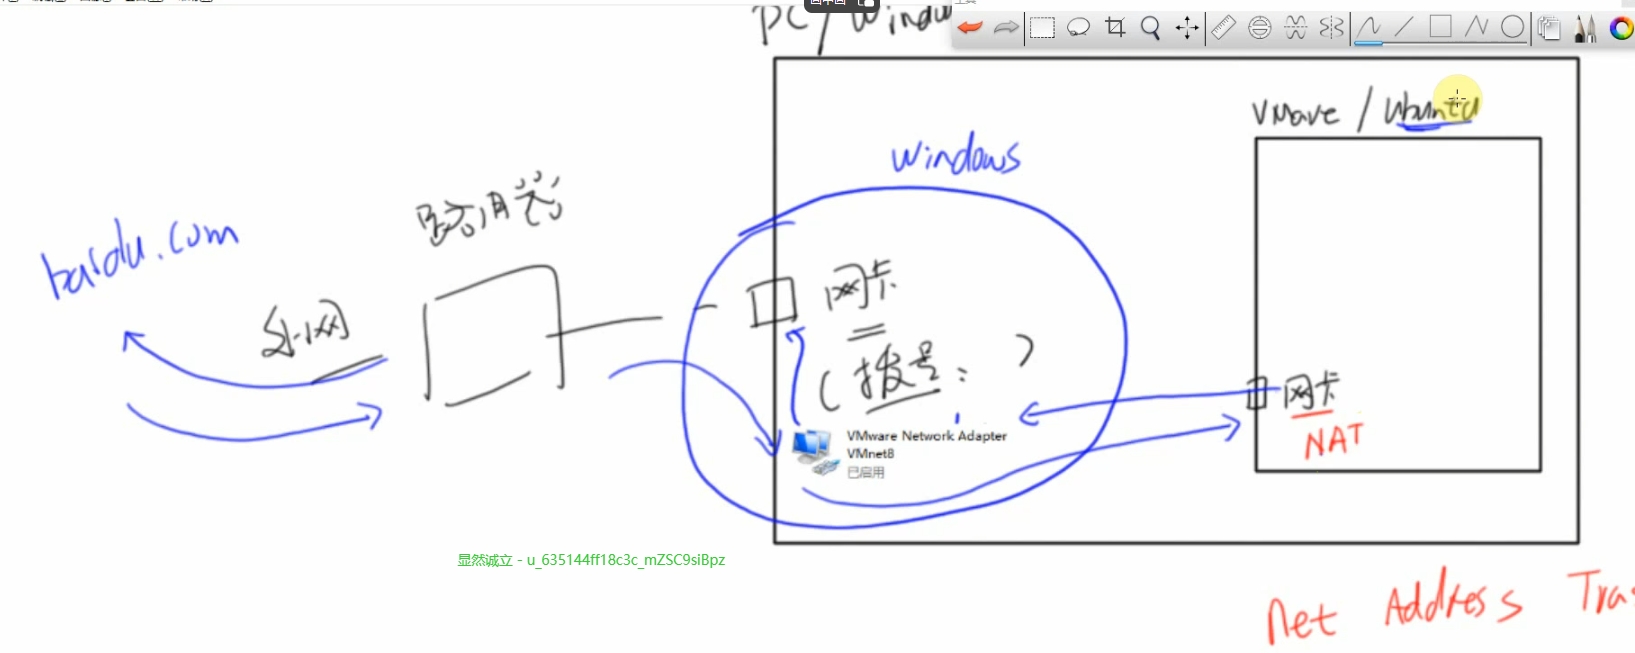 PC / Window
VMave / Ubuntu
Windows
路由器
baidu.com
外网
网卡
(拨号: )
网卡
NAT
VMware Network Adapter
VMnet8
已启用
显然诚立 - u_635144ff18c3c_mZSC9siBpz
Net Address Tras